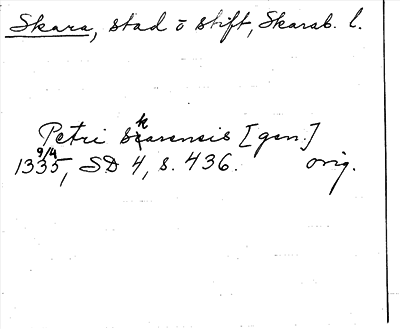 Skara, stad o stift, Skarab. l.
Petri Skarensis [gen.]
1335 9/4, SD 4, s. 436. orig.